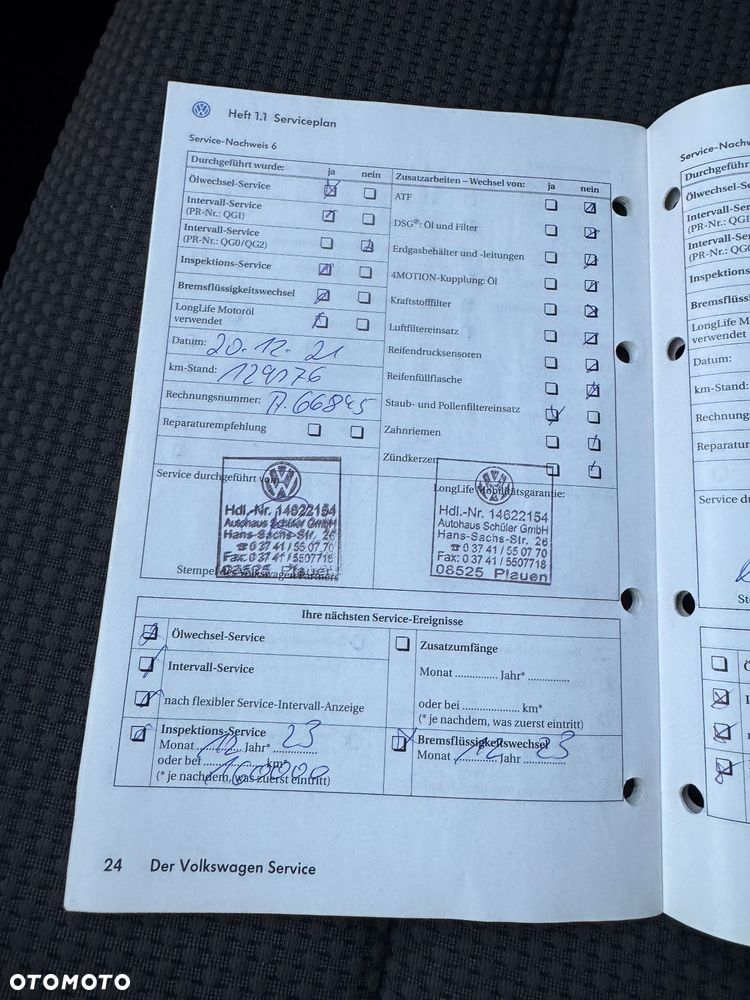 Heft 1.1 Serviceplan
Service-Nachweis 6
Durchgeführt wurde: ja nein
Ölwechsel-Service
Intervall-Service
(PR-Nr.: QG1)
Intervall-Service
(PR-Nr.: QG0/QG2)
Inspektions-Service
Bremsflüssigkeitswechsel
LongLife Motoröl
verwendet
Datum: 20.12.21
km-Stand: 129176
Rechnungsnummer: R.66845
Reparaturempfehlung
Zusatzarbeiten – Wechsel von: ja nein
ATF
DSG®: Öl und Filter
Erdgasbehälter und -leitungen
4MOTION-Kupplung: Öl
Kraftstofffilter
Luftfiltereinsatz
Reifendrucksensoren
Reifenfüllflasche
Staub- und Pollenfiltereinsatz
Zahnriemen
Zündkerzen
Service durchgeführt vom:
Hdl.-Nr. 14622154
Autohaus Schüler GmbH
Hans-Sachs-Str. 26
☎ 0 37 41 / 55 07 70
Fax: 0 37 41 / 5507718
08525 Plauen
Stempel des Volkswagen Partners
LongLife Mobilitätsgarantie:
Hdl.-Nr. 14622154
Autohaus Schüler GmbH
Hans-Sachs-Str. 26
☎ 0 37 41 / 55 07 70
Fax: 0 37 41 / 5507718
08525 Plauen
Ihre nächsten Service-Ereignisse
Ölwechsel-Service
Intervall-Service
nach flexibler Service-Intervall-Anzeige
Inspektions-Service
Monat 12 Jahr* 23
oder bei 160000 km*
(* je nachdem, was zuerst eintritt)
Zusatzumfänge
Monat .............. Jahr* ..............
oder bei ................... km*
(* je nachdem, was zuerst eintritt)
Bremsflüssigkeitswechsel
Monat 12 Jahr 23
24 Der Volkswagen Service
Service-Nachw
Durchgeführt
Ölwechsel-Se
Intervall-Serv
(PR-Nr.: QG1)
Intervall-Serv
(PR-Nr.: QG0
Inspektions
Bremsflüssi
LongLife Mo
verwendet
Datum:
km-Stand:
Rechnung
Reparatur
Service du
St
OTOMOTO